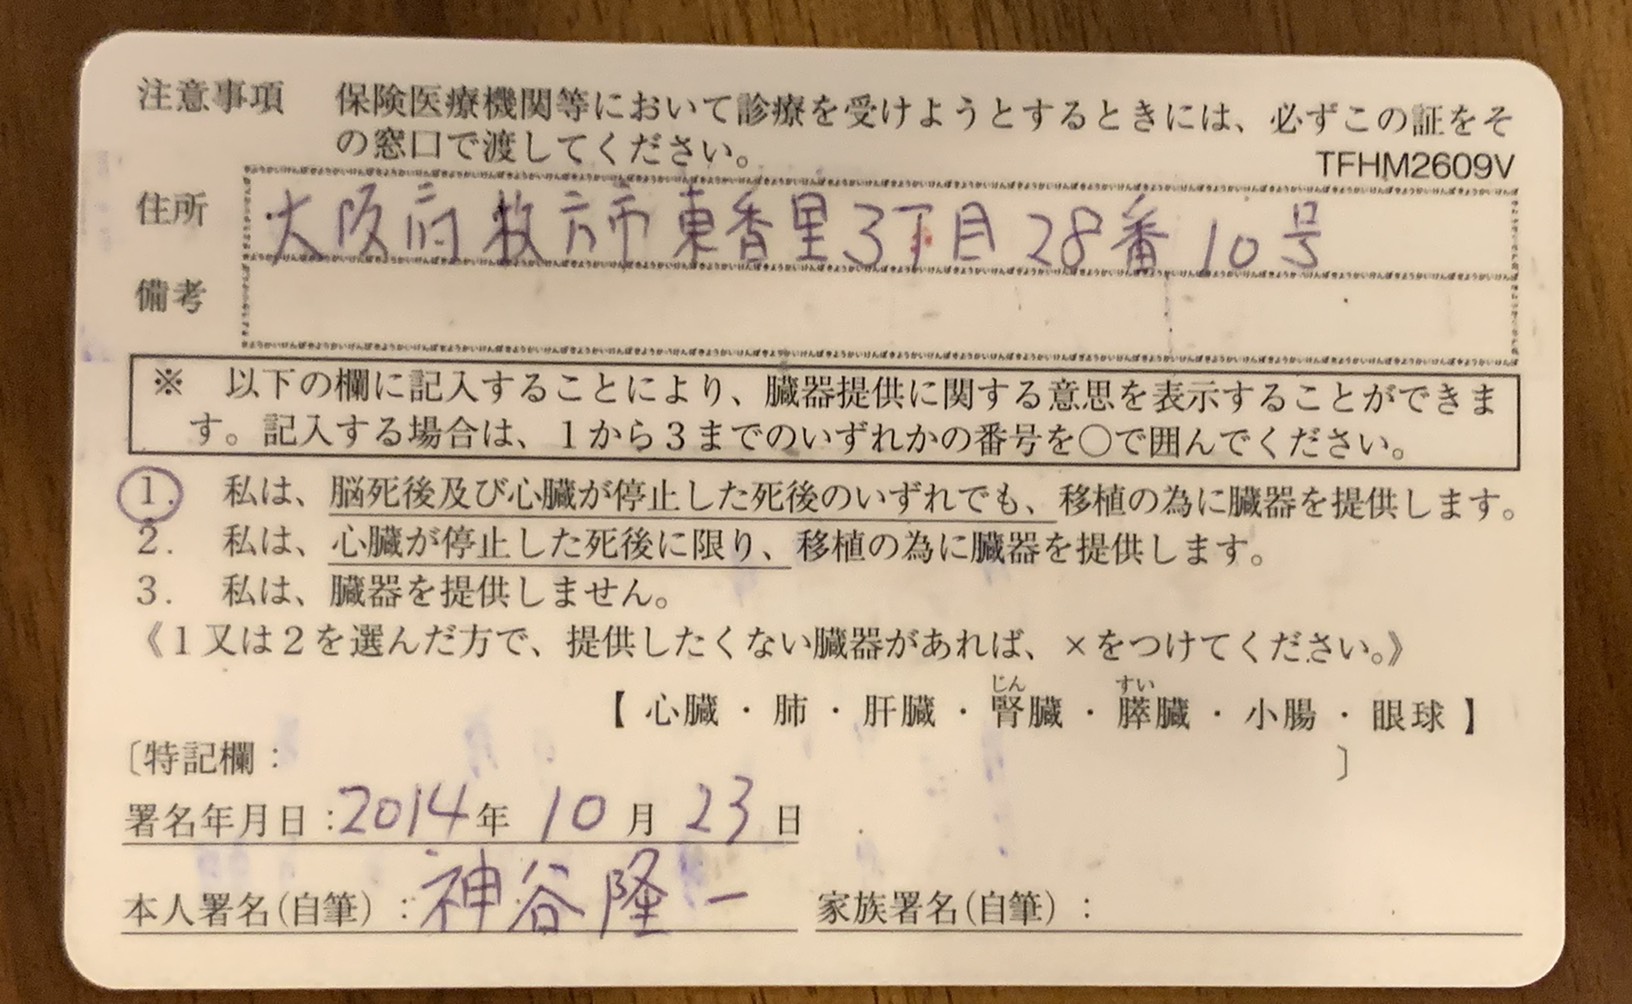 注意事項 保険医療機関等において診療を受けようとするときには、必ずこの証をそ
の窓口で渡してください。
TFHM2609V
住所 大阪府枚方市東香里3丁目28番10号
備考
※ 以下の欄に記入することにより、臓器提供に関する意思を表示することができま
す。記入する場合は、1から3までのいずれかの番号を○で囲んでください。
1. 私は、脳死後及び心臓が停止した死後のいずれでも、移植の為に臓器を提供します。
2. 私は、心臓が停止した死後に限り、移植の為に臓器を提供します。
3. 私は、臓器を提供しません。
《1又は2を選んだ方で、提供したくない臓器があれば、×をつけてください。》
じん すい
【心臓・肺・肝臓・腎臓・膵臓・小腸・眼球】
〔特記欄: 〕
署名年月日:2014年10月23日
本人署名(自筆):神谷隆一 家族署名(自筆):